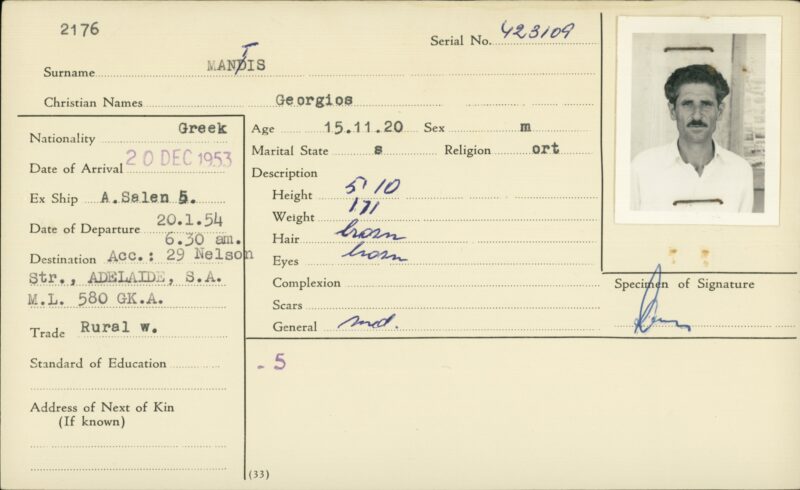 2176
Serial No. 423109
Surname MANTIS
Christian Names Georgios
Nationality Greek
Date of Arrival 20 DEC 1953
Ex Ship A.Salen 5.
Date of Departure 20.1.54
6.30 am.
Destination Acc.: 29 Nelson
Str., ADELAIDE, S.A.
M.L. 580 GK.A.
Trade Rural w.
Standard of Education
Address of Next of Kin
(If known)
Age 15.11.20 Sex m
Marital State s Religion ort
Description
Height 5'10
Weight 171
Hair brown
Eyes brown
Complexion
Scars
General med.
Specimen of Signature
- 5
(33)